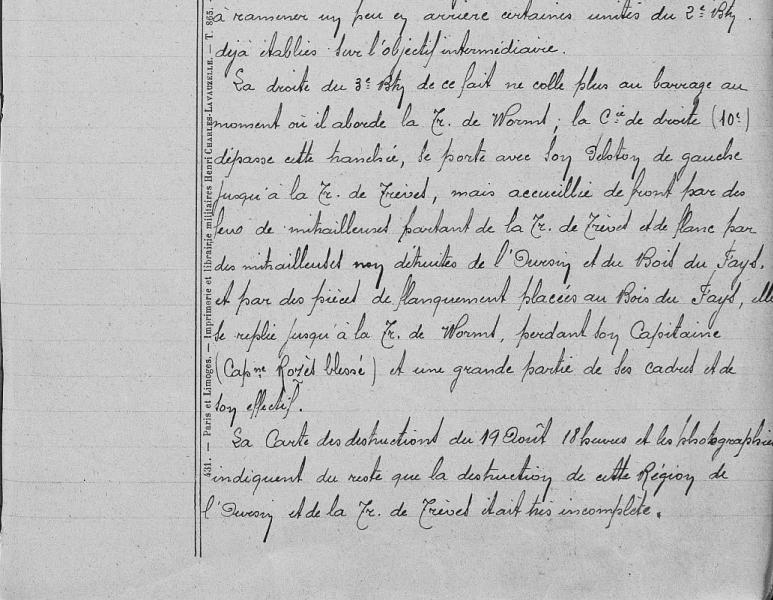 à ramener un peu en arrière certaines unités du 2e Bton
déjà établies sur l'objectif intermédiaire.
La droite du 3e Bton de ce fait ne colle plus au barrage au
moment où il aborde la Tr. de Worms ; la Cie de droite (10e)
dépasse cette tranchée, se porte avec son Peloton de gauche
jusqu'à la Tr. de Trèves, mais accueillie de front par des
feux de mitrailleuses partant de la Tr. de Trèves et de flanc par
des mitrailleuses non détruites de l'Oursin et du Bois du Fays.
et par des pièces de flanquement placées au Bois du Fays, elle
se replie jusqu'à la Tr. de Worms, perdant son Capitaine
(Capne Rozès blessé) et une grande partie de ses cadres et de
son effectif.
La Carte des destructions du 19 Août 18 heures et les photographies
indiquent du reste que la destruction de cette Région de
l'Oursin et de la Tr. de Trèves était très incomplète.
431. — Paris et Limoges. — Imprimerie et librairie militaires Henri CHARLES-LAVAUZELLE. — T. 865.